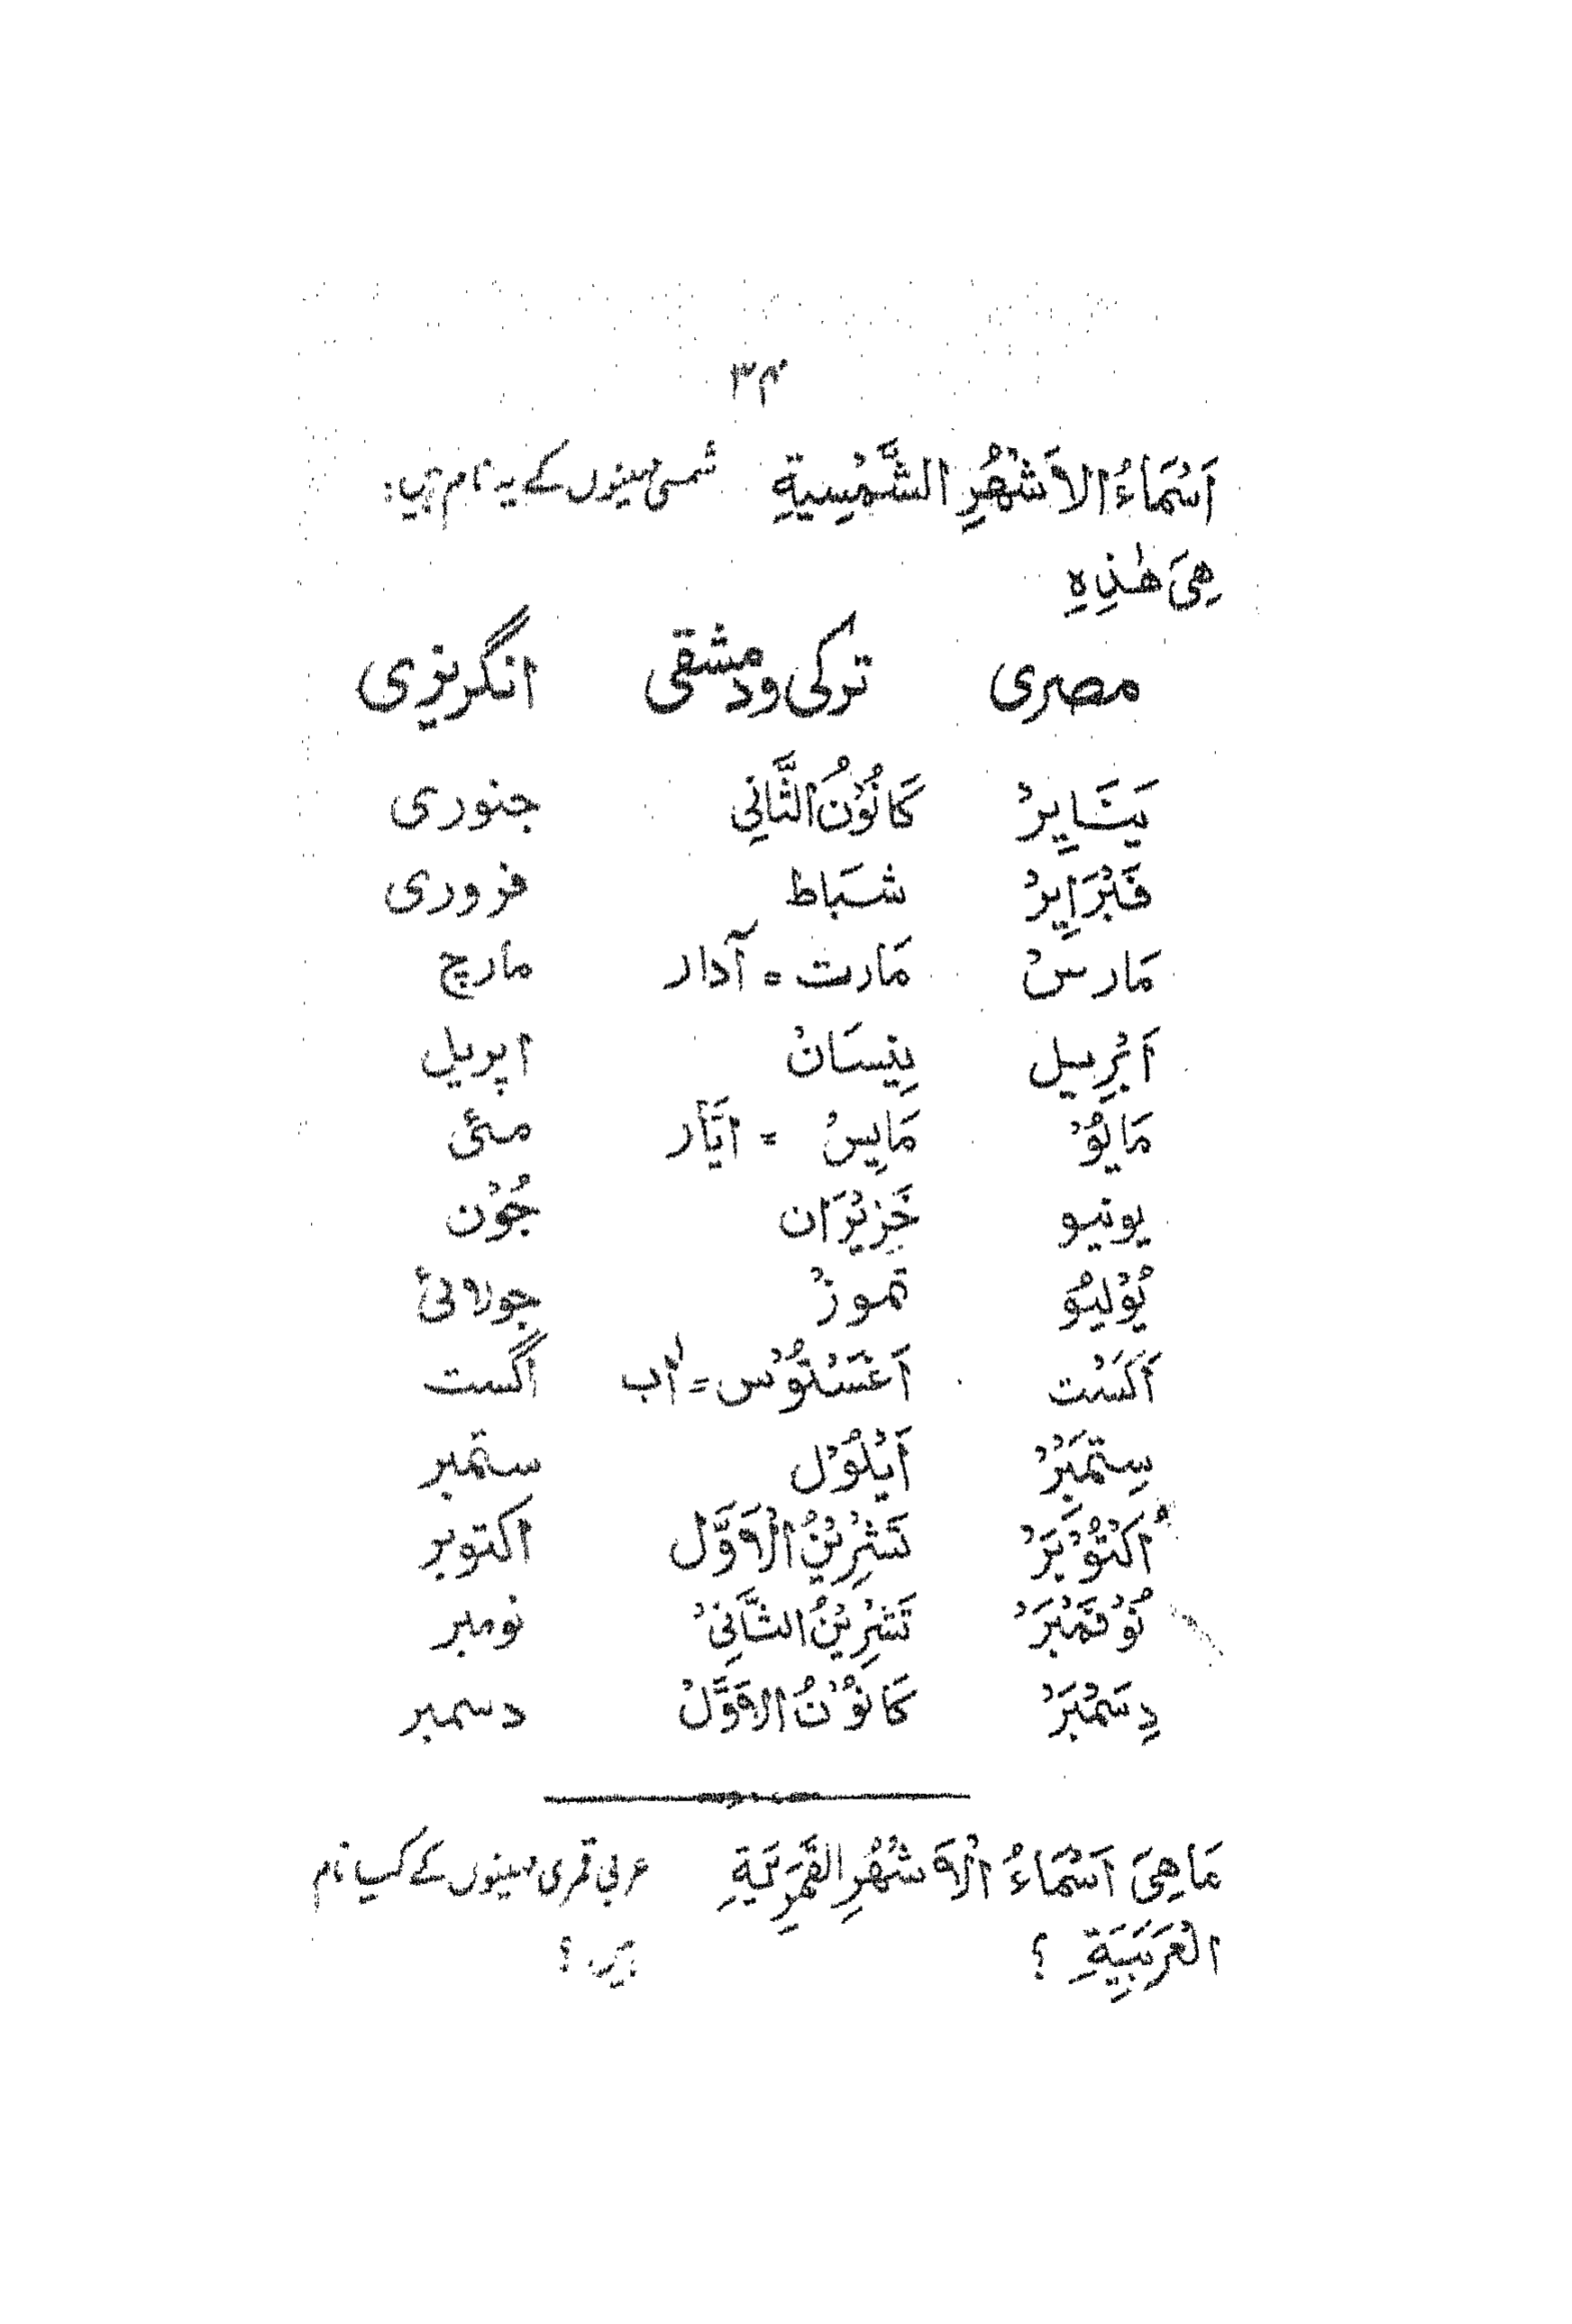 ۳۴
اَسْمَاءُ الاَشْهُرِ الشَّمْسِيةِ شمسی مہینوں کے یہ نام ہیں:
هِیَ هٰذِهِ
مصری ترکی ودمشقی انگریزی
يَنَايِرْ كَانُوْنُ الثَّانِي جنوری
فَبْرَايِرْ شَبَاط فروری
مَارسْ مَارت = آدار مارچ
اَبْرِيل نِيسَانْ اپریل
مَايُوْ مَايِسْ = اَيَّار مئی
يونيو خَزِيْرَان جُوْن
يُوْليُو تموزْ جولائی
اَكَسْت اَغَسْتُوْس = اٰب اگست
سِتَمْبَِرْ اَيْلُوْل ستمبر
اُكْتُوْبَرْ تَشْرِيْنُ الْاَوَّل اکتوبر
نُوْفَمْبَرْ تَشْرِيْنُ الثَّانِیْ نومبر
دِسَمْبَرْ كَانُوْنُ الْاَوَّلْ دسمبر
مَاهِیَ اَسْمَاءُ الْاَشْهُرِ القَمَرِيَةِ عربی قمری مہینوں کے کیا نام
الْعَرَبِيَةِ ؟ ہیں ؟